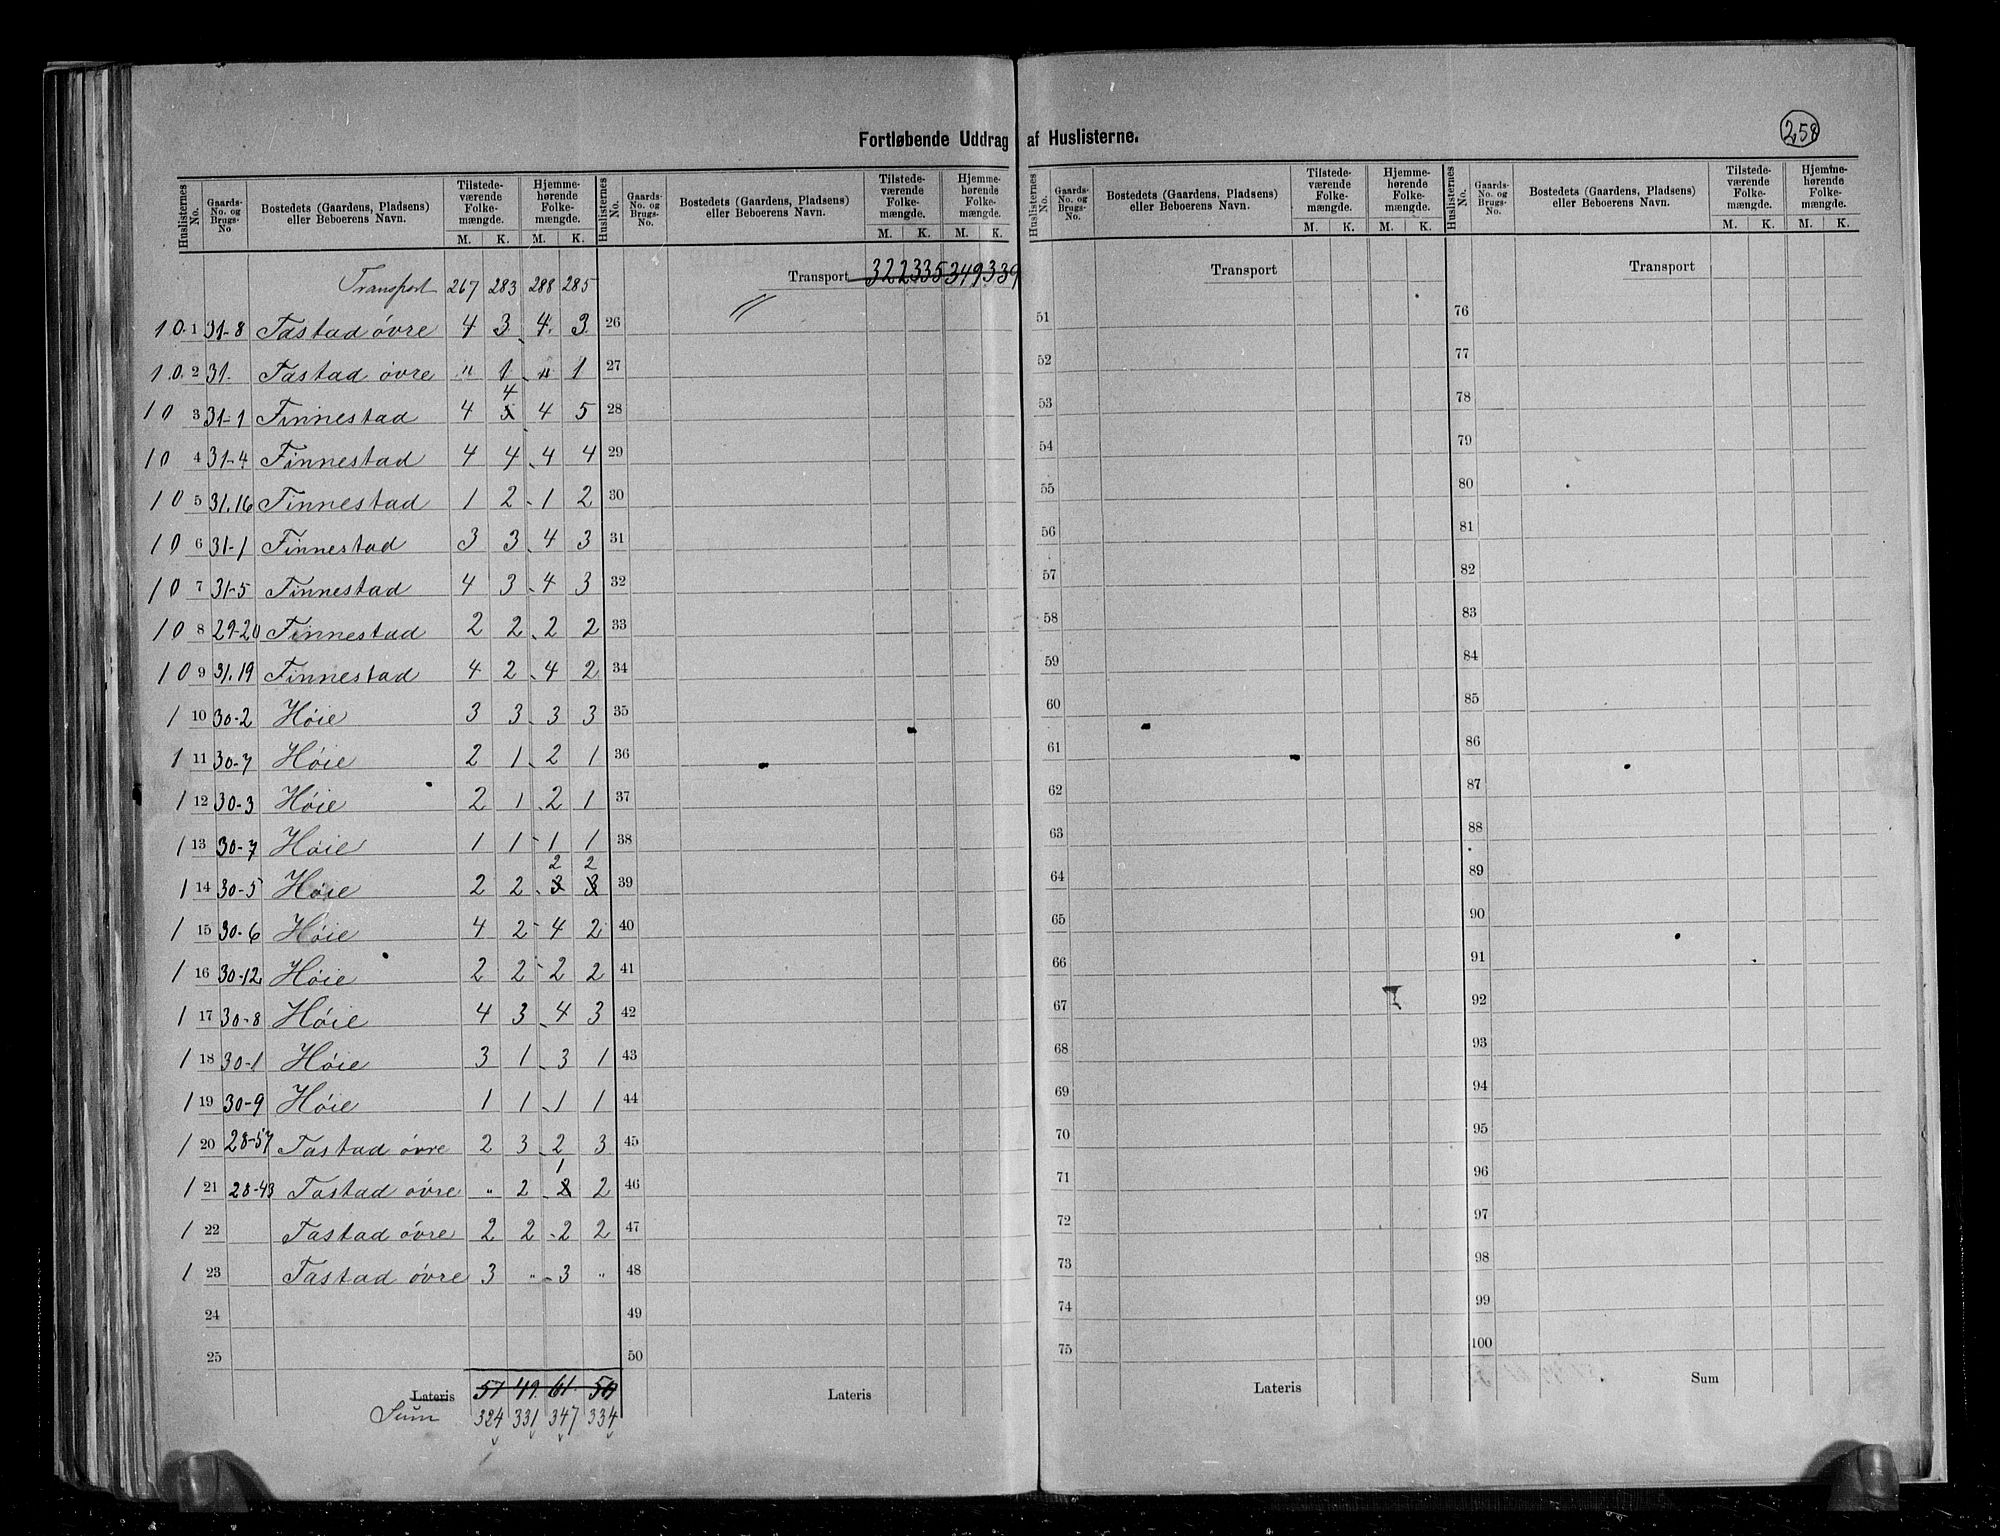 258
Fortløbende Uddrag af Huslisterne.
Huslisternes No. | Gaards-No. og Brugs-No. | Bostedets (Gaardens, Pladsens) eller Beboerens Navn. | Tilstedeværende Folkemængde. M. K. | Hjemmehørende Folkemængde. M. K.
Transport 267 283 288 285
10. 1 31-8 Tastad övre 4 3 4. 3
10. 2 31. Tastad övre " 1 " 1
10 3 31-1 Finnestad 4 4 4 5
10 4 31-4 Finnestad 4 4 4 4
10 5 31.16 Finnestad 1 2 1 2
10 6 31-1 Finnestad 3 3 4 3
10 7 31-5 Finnestad 4 3 4 3
10 8 29-20 Finnestad 2 2 2 2
10 9 31.19 Finnestad 4 2 4 2
1 10 30-2 Høie 3 3 3 3
1 11 30-7 Høie 2 1 2 1
1 12 30-3 Høie 2 1 2 1
1 13 30-7 Høie 1 1 1 1
1 14 30-5 Høie 2 2 2 2
1 15 30-6 Høie 4 2 4 2
1 16 30-12 Høie 2 2 2 2
1 17 30-8 Høie 4 3 4 3
1 18 30-1 Høie 3 1 3 1
1 19 30-9 Høie 1 1 1 1
1 20 28-57 Tastad övre 2 3 2 3
1 21 28-43 Tastad övre " 2 1 2
1 22 Tastad övre 2 2 2 2
1 23 Tastad övre 3 " 3 "
24
25
Lateris 57 49. 61. 50
Sum 324 331 347 334
Huslisternes No. | Gaards-No. og Brugs-No. | Bostedets (Gaardens, Pladsens) eller Beboerens Navn. | Tilstedeværende Folkemængde. M. K. | Hjemmehørende Folkemængde. M. K.
Transport 322 335 349. 339
26 "
27
28
29
30
31
32
33
34
35
36
37
38
39
40
41
42
43
44
45
46
47
48
49
50
Lateris
Huslisternes No. | Gaards-No. og Brugs-No. | Bostedets (Gaardens, Pladsens) eller Beboerens Navn. | Tilstedeværende Folkemængde. M. K. | Hjemmehørende Folkemængde. M. K.
Transport
51
52
53
54
55
56
57
58
59
60
61
62
63
64
65
66
67
68
69
70
71
72
73
74
75
Lateris
Huslisternes No. | Gaards-No. og Brugs-No. | Bostedets (Gaardens, Pladsens) eller Beboerens Navn. | Tilstedeværende Folkemængde. M. K. | Hjemmehørende Folkemængde. M. K.
Transport
76
77
78
79
80
81
82
83
84
85
86
87
88
89
90
91
92
93
94
95
96
97
98
99
100
Sum